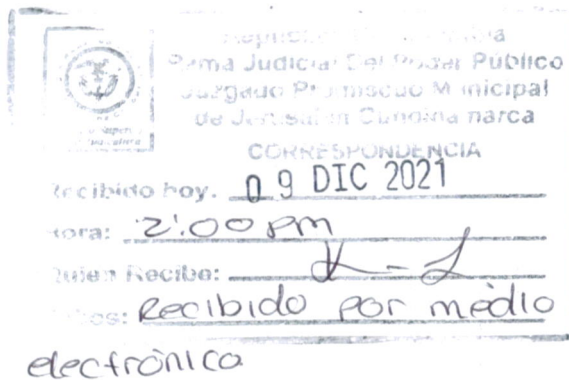 Rama Judicial Del Poder Público
Juzgado Promiscuo Municipal
de Jerusalén Cundinamarca
CORRESPONDENCIA
Recibido hoy. 09 DIC 2021
Hora: 2:00 pm
Quien Recibe:
Recibido por medio
electrónico